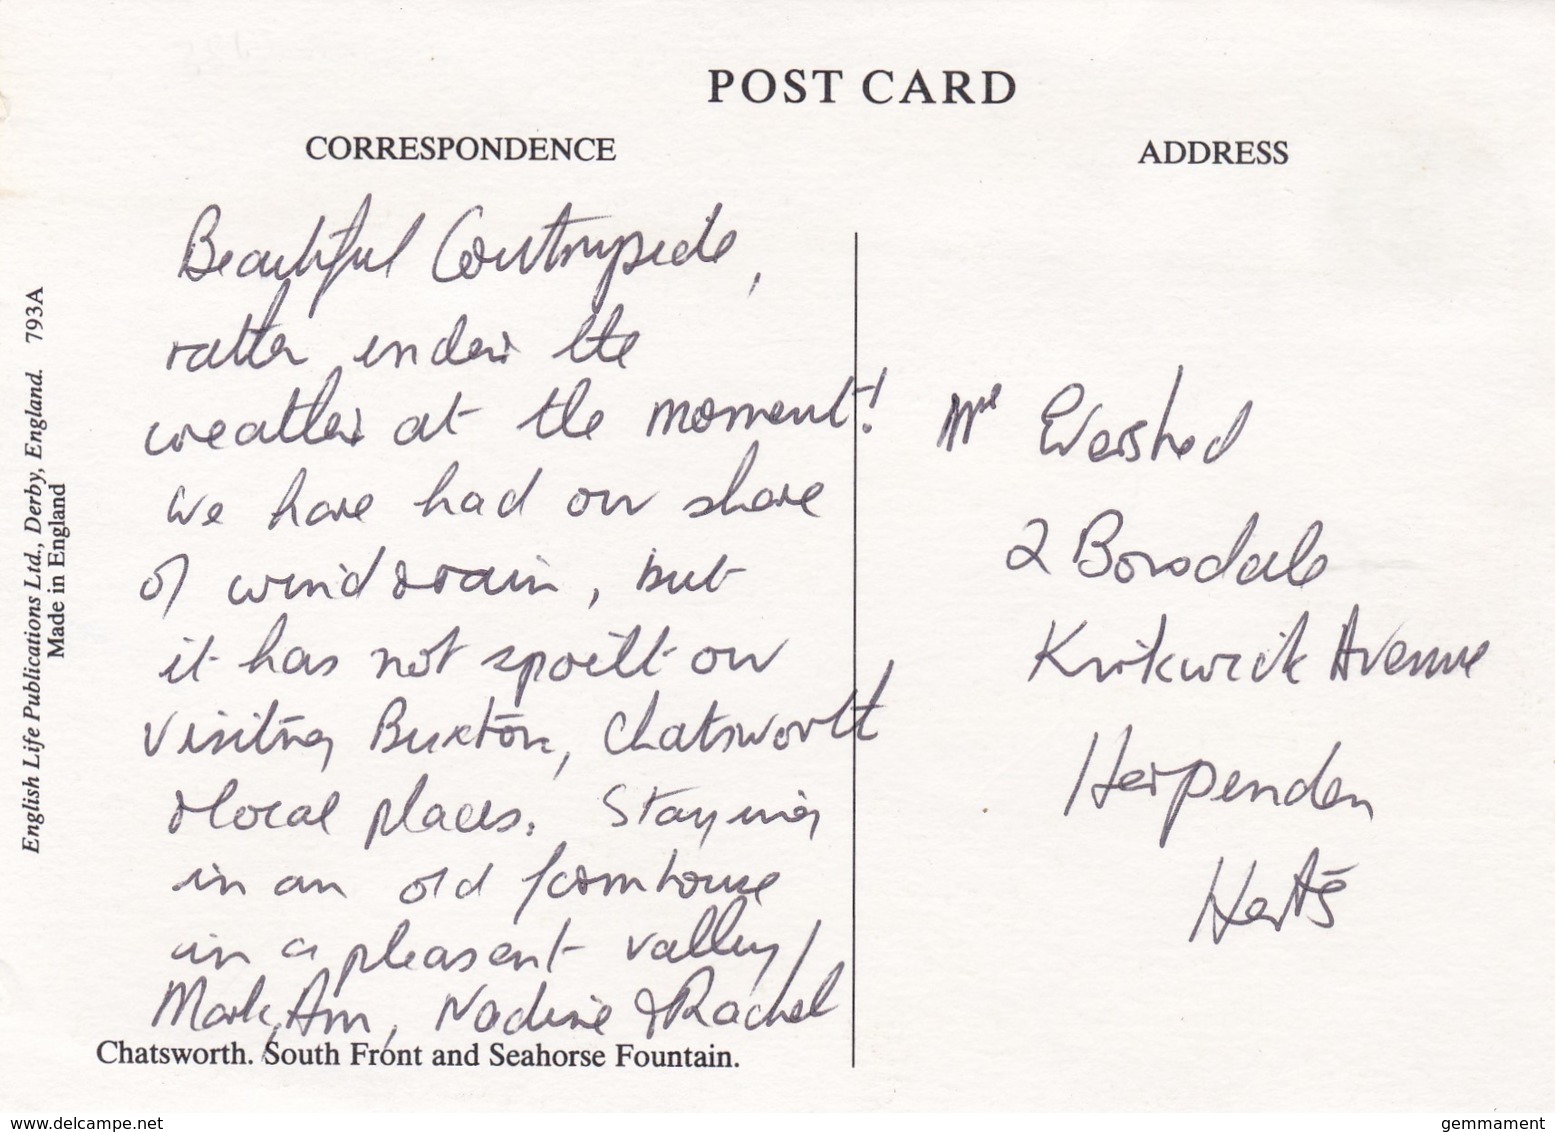 POST CARD
CORRESPONDENCE
ADDRESS
Beautiful Countryside,
rather under the
weather at the moment!
We have had our share
of wind & rain, but
it has not spoilt our
visiting Buxton, Chatsworth
& local places. Staying
in an old farmhouse
in a pleasant valley/
Mark, Ann, Nadine & Rachel
Chatsworth. South Front and Seahorse Fountain.
English Life Publications Ltd., Derby, England. 793A
Made in England
Evershed
2 Borodale
Kirkwick Avenue
Harpenden
Herts
www.delcampe.net
gemmament